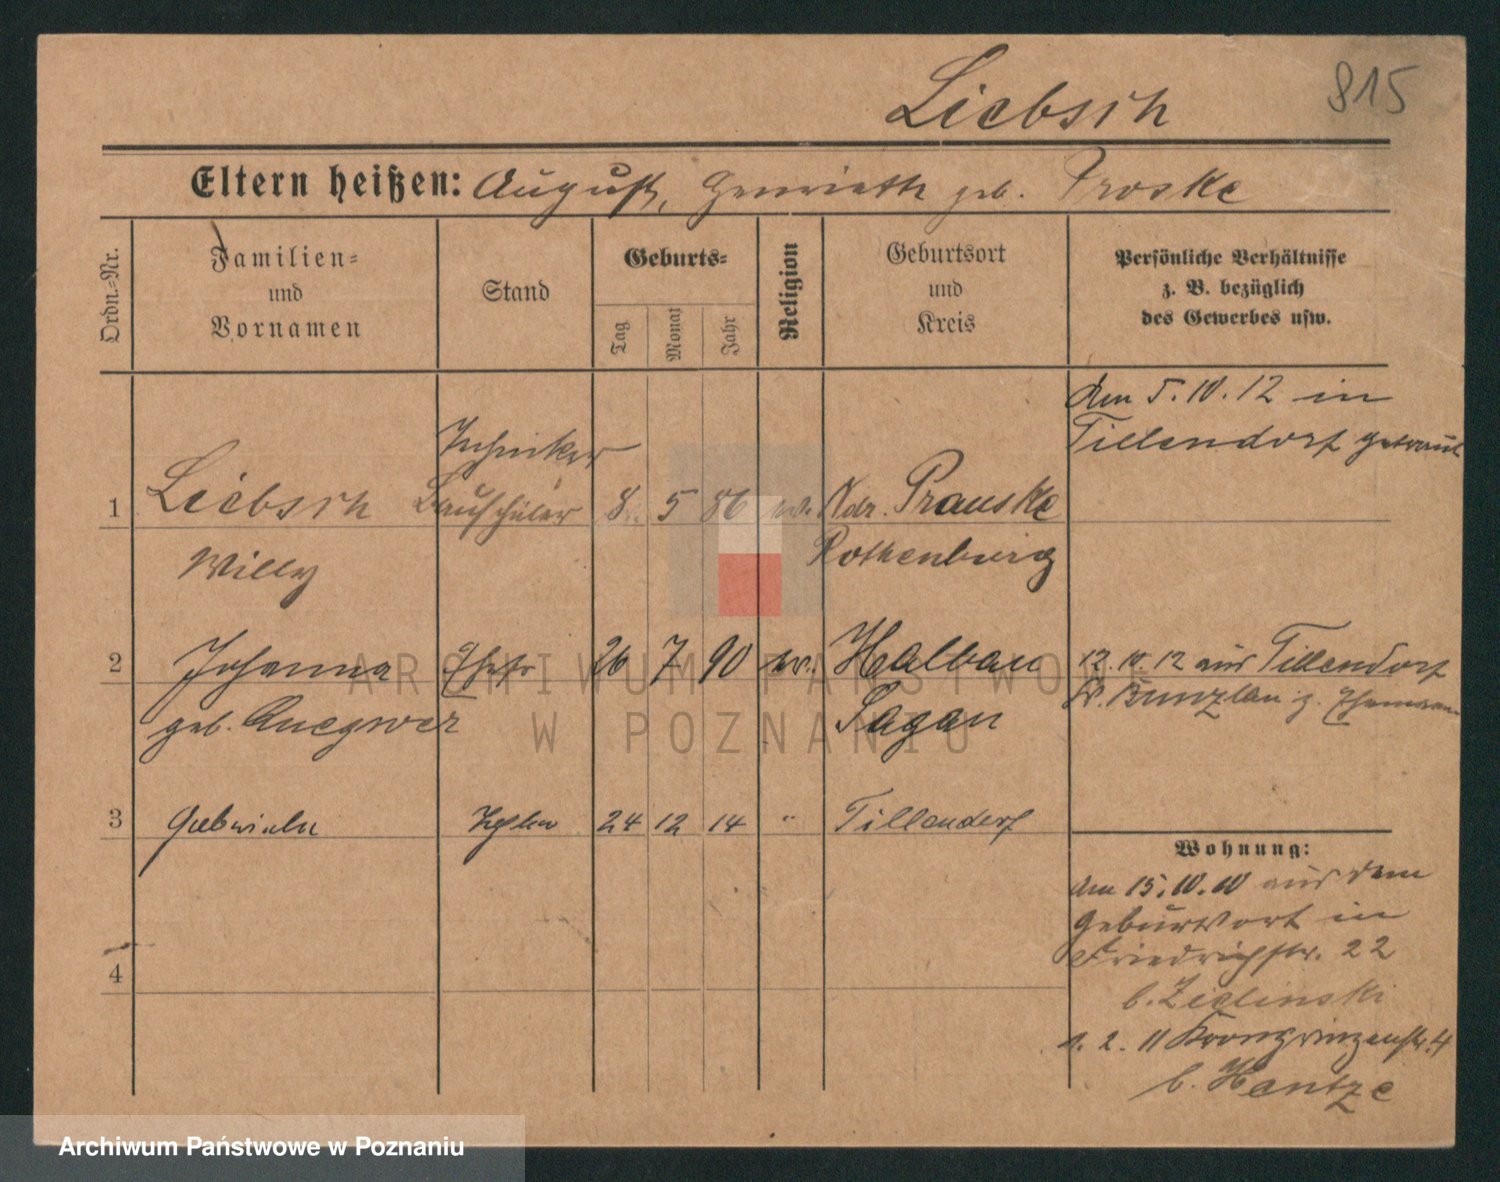 Liebsch
815
Eltern heißen: August, Henriette geb. Proske
Ordn.=Nr.
Familien=
und
Vornamen
Stand
Geburts=
Tag
Monat
Jahr
Religion
Geburtsort
und
Kreis
Persönliche Verhältnisse
z. B. bezüglich
des Gewerbes usw.
den 5.10.12 in
Tillendorf getraut
Techniker
1 Liebsch Bauschüler 8 5 86 ev. Ndr. Prauske
Willy Rothenburg
2 Johanna Ehefr 26 7 90 ev. Halbau
geb. Sagan
12.10.12 aus Tillendorf
Kr. Bunzlau z. Ehemann
3 Tochter 24 12 14 " Tillendorf
4
Wohnung:
den 15.10.10 aus dem
Geburtsort in
Friedrichstr. 22
b. Zielinski
1. 2. 11 Kronprinzenstr. 4
b. Hentze
ARCHIWUM PAŃSTWOWE
W POZNANIU
Archiwum Państwowe w Poznaniu